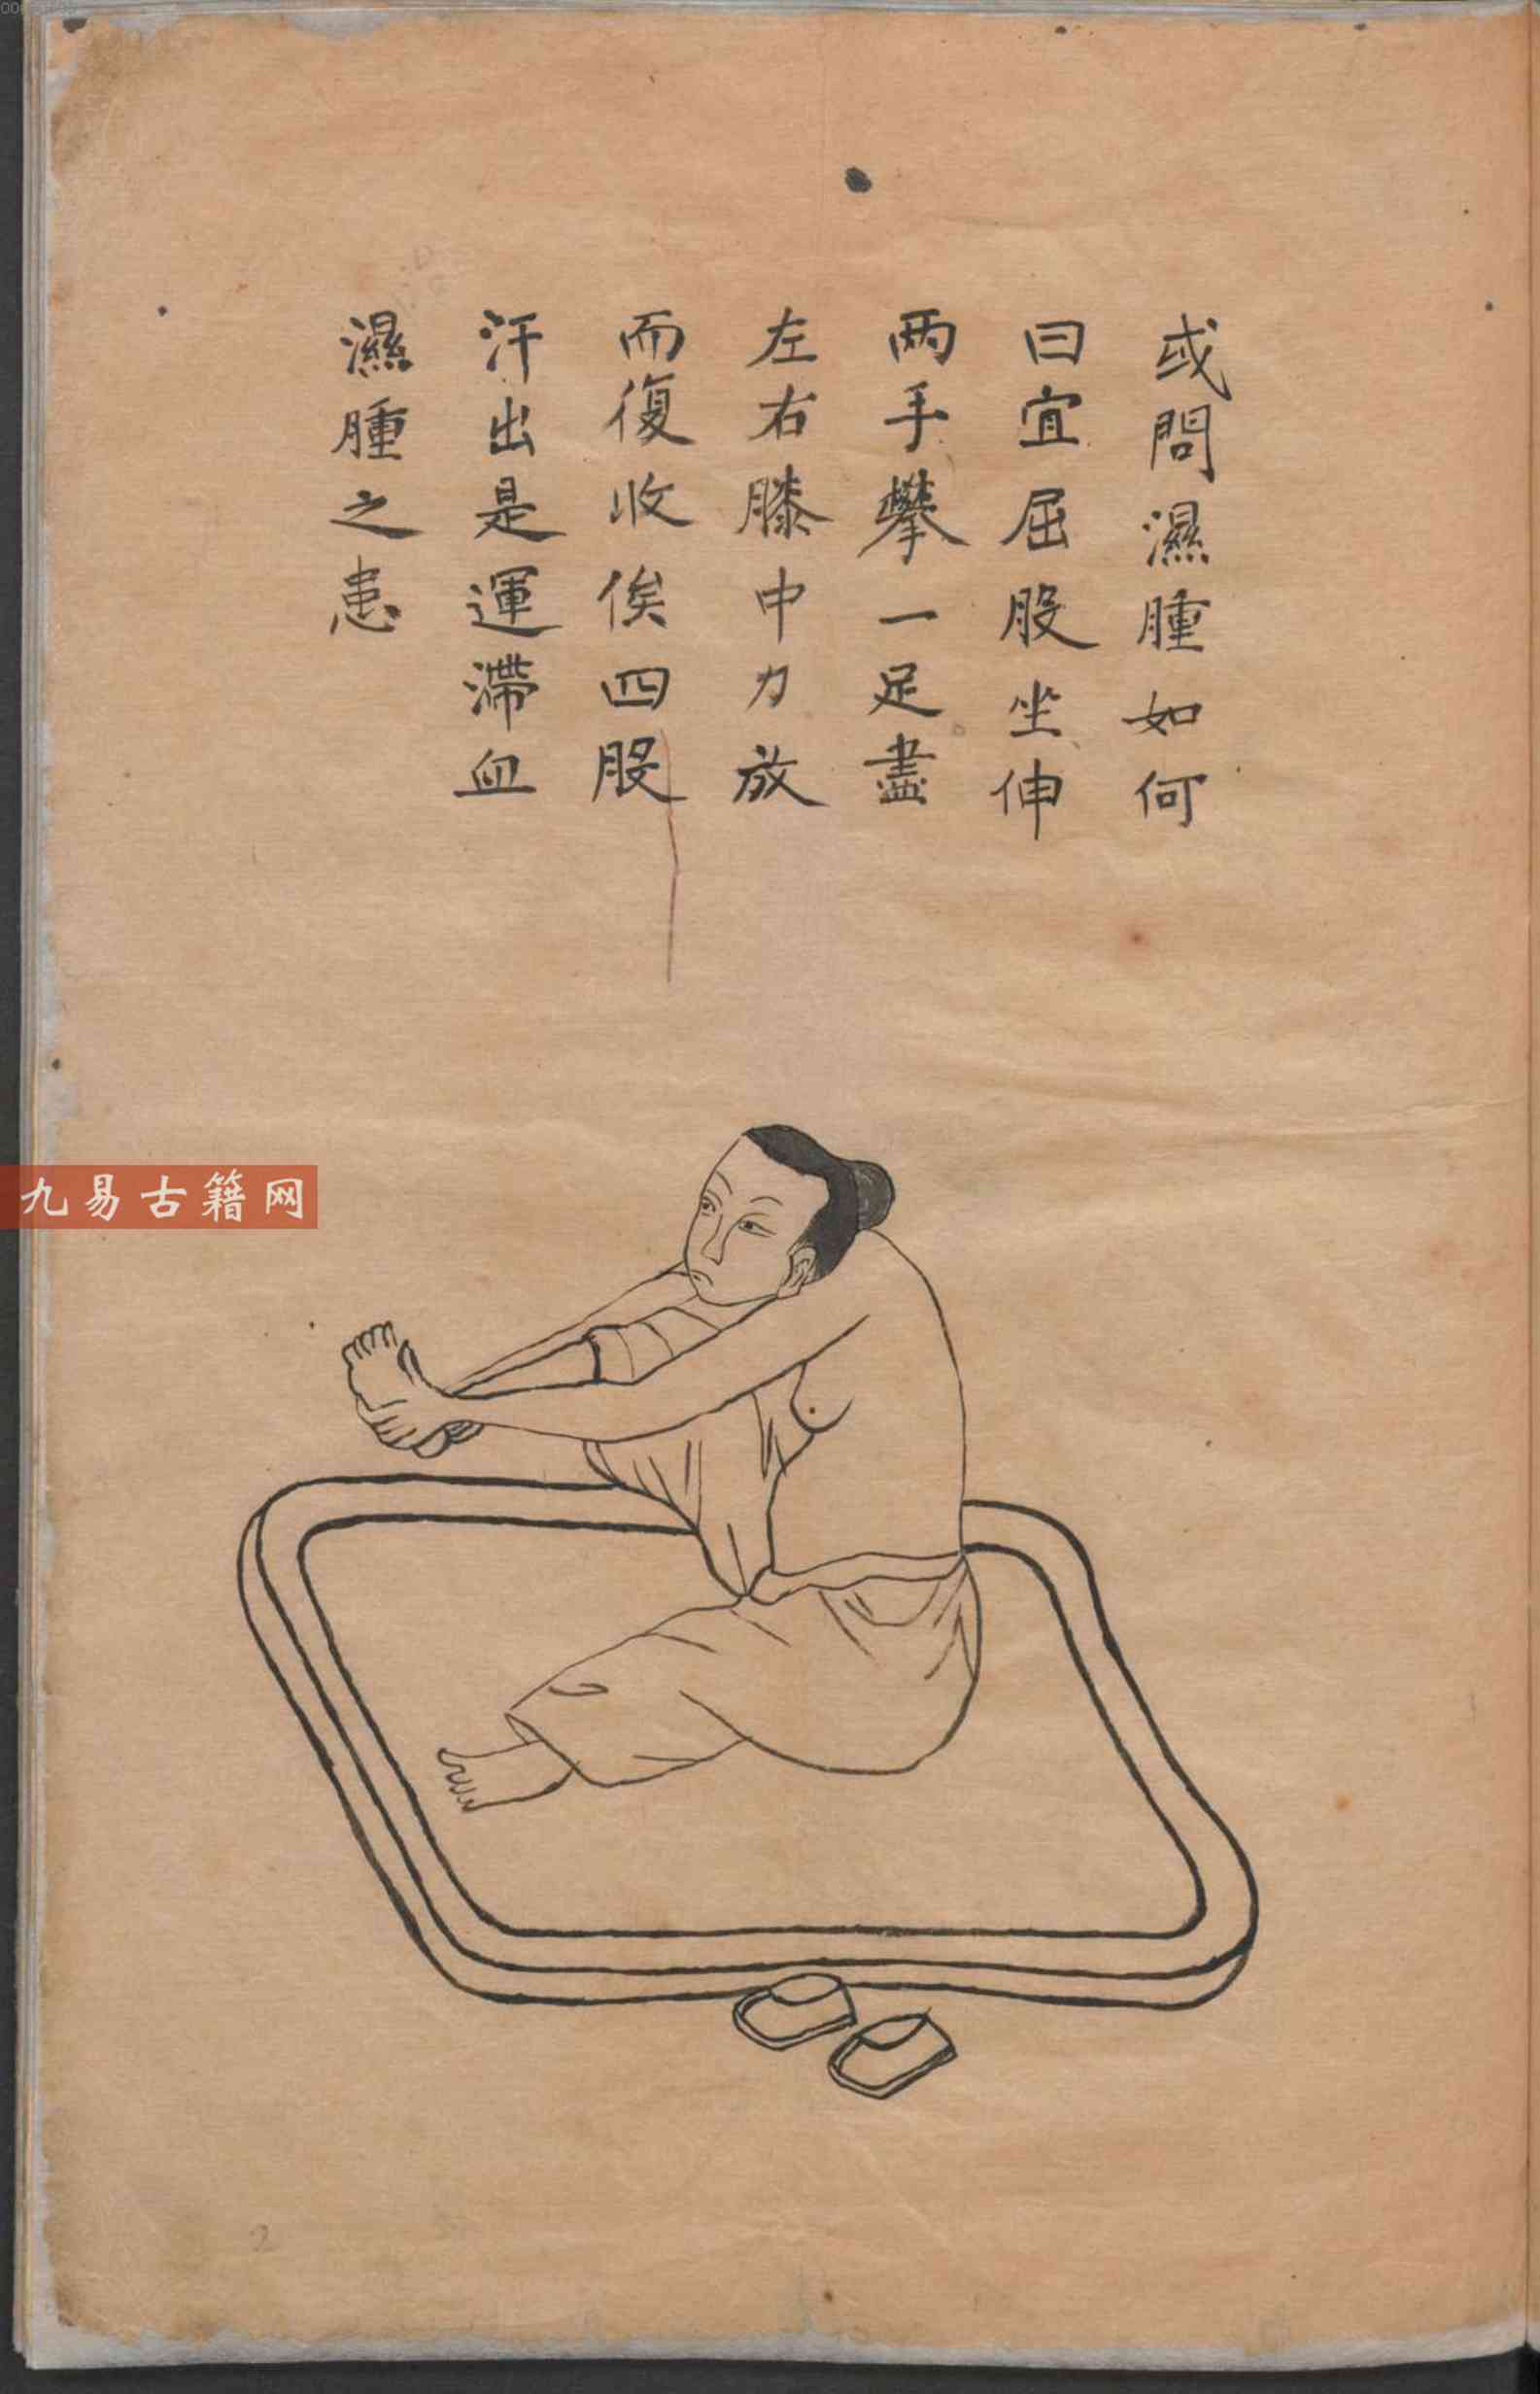 或問濕腫如何
曰宜屈股坐伸
两手攀一足盡
左右膝中力放
而復收俟四股
汗出是運滯血
濕腫之患
九易古籍网